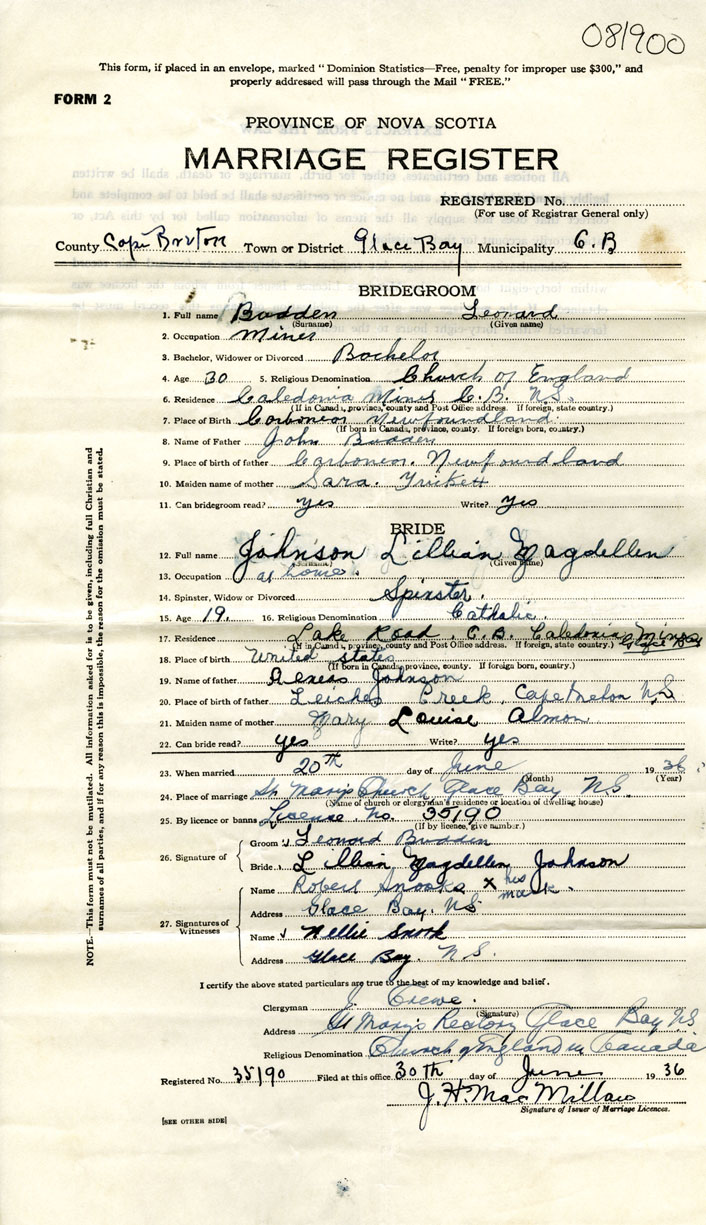 081900
This form, if placed in an envelope, marked "Dominion Statistics—Free, penalty for improper use $300," and
properly addressed will pass through the Mail "FREE."
FORM 2
PROVINCE OF NOVA SCOTIA
MARRIAGE REGISTER
REGISTERED No.
(For use of Registrar General only)
County Cape Breton Town or District Glace Bay Municipality C.B
BRIDEGROOM
1. Full name Budden Leonard
(Surname) (Given name)
2. Occupation Miner
3. Bachelor, Widower or Divorced Bachelor
4. Age 30 5. Religious Denomination Church of England
6. Residence Caledonia Mines C.B. N.S.
(If in Canada, province, county and Post Office address. If foreign, state country.)
7. Place of Birth Carbonear Newfoundland
(If born in Canada, province, county. If foreign born, country.)
8. Name of Father John Budden
9. Place of birth of father Carbonear. Newfoundland
10. Maiden name of mother Sara. Trickett
11. Can bridegroom read? yes Write? yes
BRIDE
12. Full name Johnson Lillian Magdellen
(Surname) (Given name)
13. Occupation at home.
14. Spinster, Widow or Divorced Spinster.
15. Age 19. 16. Religious Denomination Catholic.
17. Residence Lake Road. C.B. Caledonia Mines Glace Bay
(If in Canada, province, county and Post Office address. If foreign, state country.)
18. Place of birth United States
(If born in Canada, province, county. If foreign born, country.)
19. Name of father Aeneas Johnson
20. Place of birth of father Leiches Creek, Cape Breton N.S
21. Maiden name of mother Mary Louise Almon
22. Can bride read? yes Write? yes
23. When married 20th day of June 1936
(Month) (Year)
24. Place of marriage St Mary's Church Glace Bay N.S.
(Name of church or clergyman's residence or location of dwelling house)
25. By licence or banns License No. 35190
(If by licence, give number.)
26. Signature of
Groom Leonard Budden
Bride Lillian Magdellen Johnson
27. Signatures of Witnesses
Name Robert Snooks x his mark.
Address Glace Bay. NS
Name Nellie Snook
Address Glace Bay. N.S.
I certify the above stated particulars are true to the best of my knowledge and belief.
Clergyman J. Crewe.
(Signature)
Address St Mary's Rectory Glace Bay N.S.
Religious Denomination Church of England in Canada
Registered No. 35190 Filed at this office 30th day of June 1936
J. H. MacMillan
Signature of Issuer of Marriage Licences.
[SEE OTHER SIDE]
NOTE.—This form must not be mutilated. All information asked for is to be given, including full Christian and
surnames of all parties, and if for any reason this is impossible, the reason for the omission must be stated.